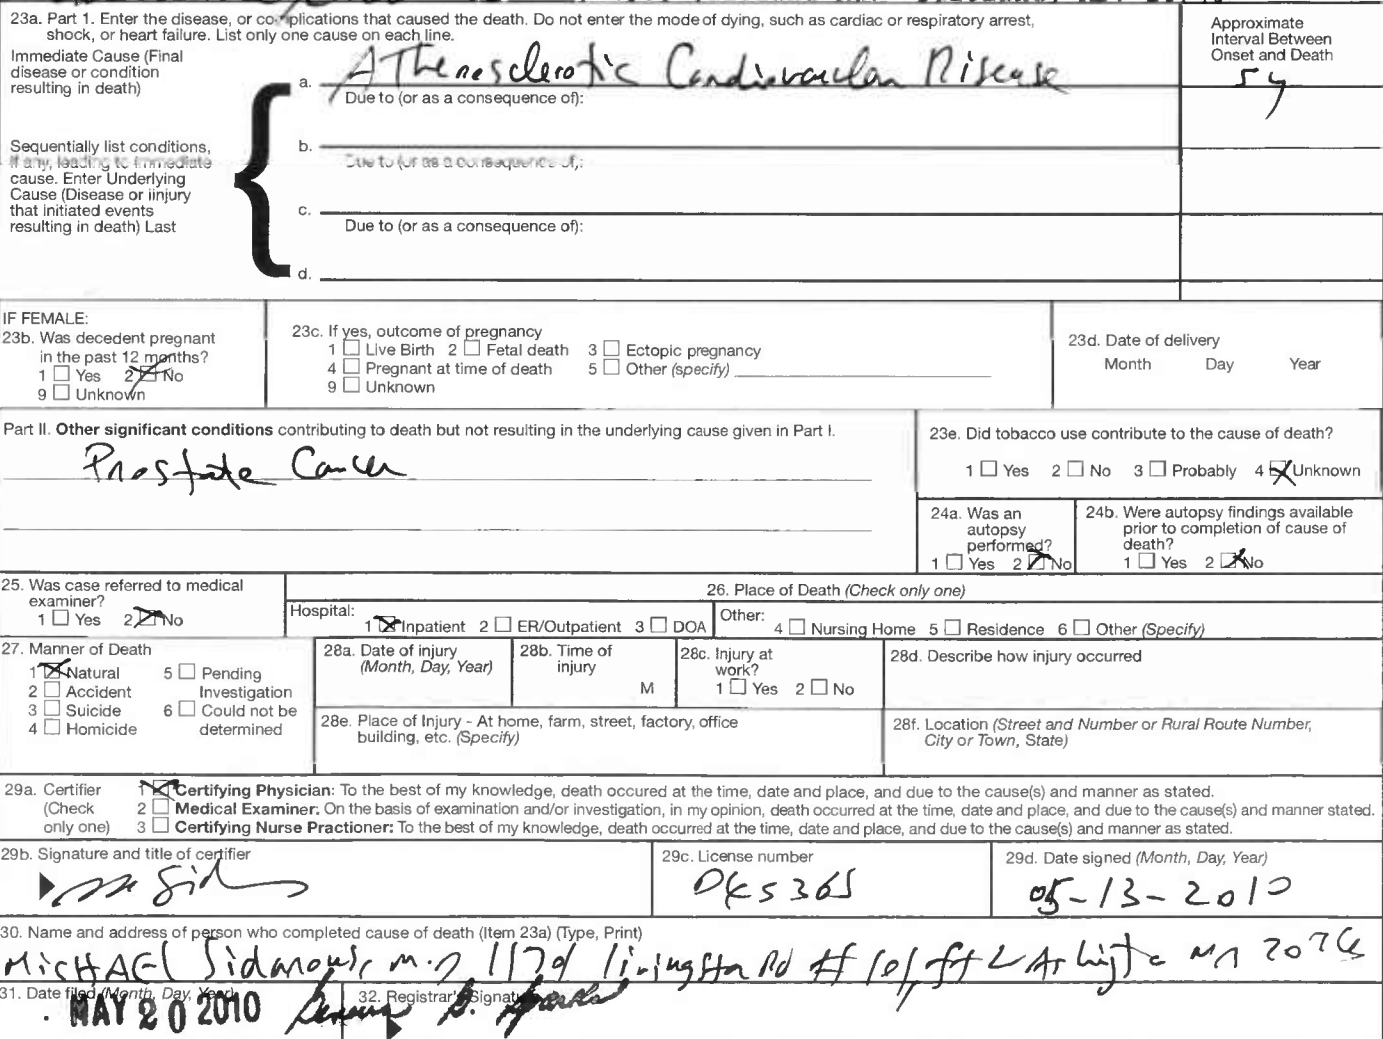 23a. Part 1. Enter the disease, or complications that caused the death. Do not enter the mode of dying, such as cardiac or respiratory arrest,
shock, or heart failure. List only one cause on each line.
Approximate
Interval Between
Onset and Death
Immediate Cause (Final
disease or condition
resulting in death)
a. Atherosclerotic Cardiovascular Disease
5 y
Due to (or as a consequence of):
Sequentially list conditions,
if any, leading to immediate
cause. Enter Underlying
Cause (Disease or iinjury
that initiated events
resulting in death) Last
b.
Due to (or as a consequence of):
c.
Due to (or as a consequence of):
d.
IF FEMALE:
23b. Was decedent pregnant
in the past 12 months?
1 ☐ Yes 2 ☒ No
9 ☐ Unknown
23c. If yes, outcome of pregnancy
1 ☐ Live Birth 2 ☐ Fetal death 3 ☐ Ectopic pregnancy
4 ☐ Pregnant at time of death 5 ☐ Other (specify)
9 ☐ Unknown
23d. Date of delivery
Month Day Year
Part II. Other significant conditions contributing to death but not resulting in the underlying cause given in Part I.
Prostate Cancer
23e. Did tobacco use contribute to the cause of death?
1 ☐ Yes 2 ☐ No 3 ☐ Probably 4 ☒ Unknown
24a. Was an
autopsy
performed?
1 ☐ Yes 2 ☒ No
24b. Were autopsy findings available
prior to completion of cause of
death?
1 ☐ Yes 2 ☒ No
25. Was case referred to medical
examiner?
1 ☐ Yes 2 ☒ No
26. Place of Death (Check only one)
Hospital:
1 ☒ Inpatient 2 ☐ ER/Outpatient 3 ☐ DOA
Other:
4 ☐ Nursing Home 5 ☐ Residence 6 ☐ Other (Specify)
27. Manner of Death
1 ☒ Natural 5 ☐ Pending
2 ☐ Accident Investigation
3 ☐ Suicide 6 ☐ Could not be
4 ☐ Homicide determined
28a. Date of injury
(Month, Day, Year)
28b. Time of
injury
M
28c. Injury at
work?
1 ☐ Yes 2 ☐ No
28d. Describe how injury occurred
28e. Place of Injury - At home, farm, street, factory, office
building, etc. (Specify)
28f. Location (Street and Number or Rural Route Number,
City or Town, State)
29a. Certifier
(Check
only one)
1 ☒ Certifying Physician: To the best of my knowledge, death occured at the time, date and place, and due to the cause(s) and manner as stated.
2 ☐ Medical Examiner: On the basis of examination and/or investigation, in my opinion, death occurred at the time, date and place, and due to the cause(s) and manner stated.
3 ☐ Certifying Nurse Practioner: To the best of my knowledge, death occurred at the time, date and place, and due to the cause(s) and manner as stated.
29b. Signature and title of certifier
29c. License number
29d. Date signed (Month, Day, Year)
05-13-2010
30. Name and address of person who completed cause of death (Item 23a) (Type, Print)
MICHAEL Sidarous, M.D Livingston Rd # 101, ft
31. Date filed (Month, Day, Year)
MAY 20 2010
32. Registrar's Signature